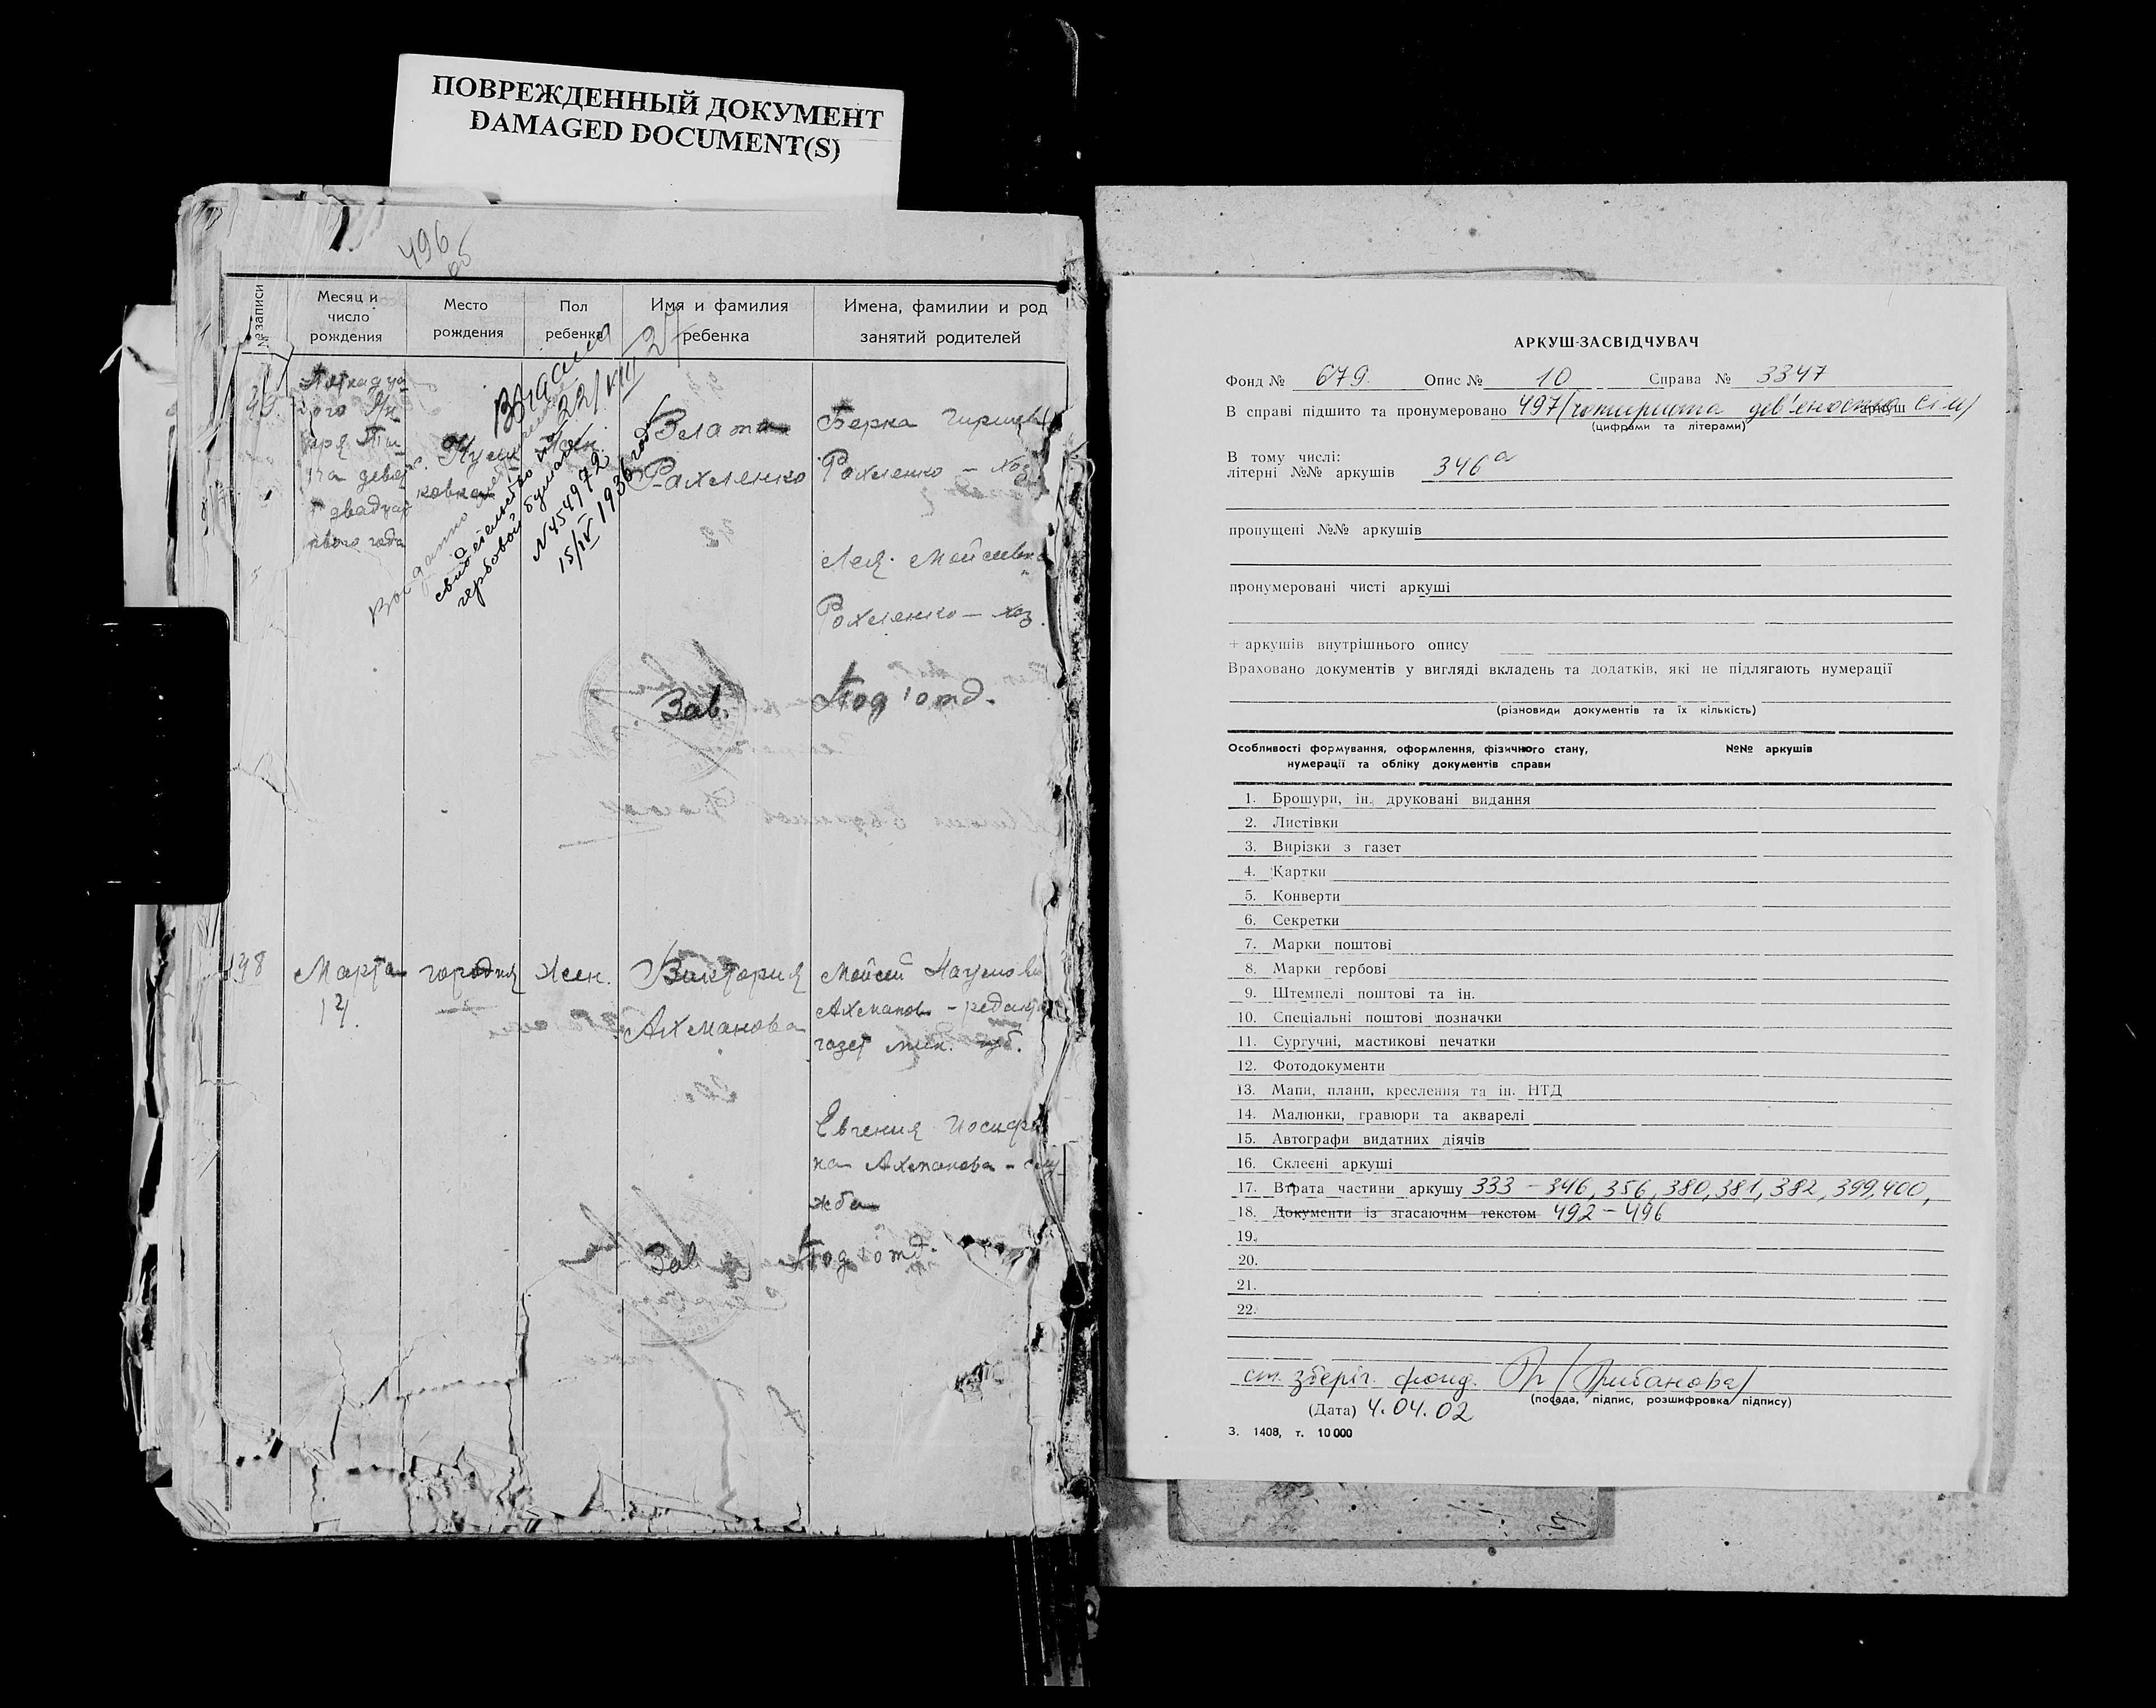 ПОВРЕЖДЕННЫЙ ДОКУМЕНТ
DAMAGED DOCUMENT(S)
496
об
№ записи
Месяц и
число
рождения
Место
рождения
Пол
ребенка
Имя и фамилия
ребенка
Имена, фамилии и род
занятий родителей
22/VIII
свидетельство на
гербовой бумаге
N 454972
15/IV 1936 года
Злата
Рахленко
Берка
Рохленко – хоз
Лея Мойсеевна
Рохленко – хоз.
Зав. Под'отд.
198
Марта
14.
городня
Жен.
Виктория
Ахманова
Мойсей Наумови
Ахманов – редакт
газет
Евгения Иосифо
на Ахманова – слу
жба
Зав Под'отд.
АРКУШ-ЗАСВІДЧУВАЧ
Фонд № 679. Опис № 10 Справа № 3347
В справі підшито та пронумеровано 497 (чотириста дев'яносто сім) аркуш
(цифрами та літерами)
В тому числі:
літерні №№ аркушів 346а
пропущені №№ аркушів
пронумеровані чисті аркуші
+ аркушів внутрішнього опису
Враховано документів у вигляді вкладень та додатків, які не підлягають нумерації
(різновиди документів та їх кількість)
Особливості формування, оформлення, фізичного стану, №№ аркушів
нумерації та обліку документів справи
1. Брошури, ін. друковані видання
2. Листівки
3. Вирізки з газет
4. Картки
5. Конверти
6. Секретки
7. Марки поштові
8. Марки гербові
9. Штемпелі поштові та ін.
10. Спеціальні поштові позначки
11. Сургучні, мастикові печатки
12. Фотодокументи
13. Мапи, плани, креслення та ін. НТД
14. Малюнки, гравюри та акварелі
15. Автографи видатних діячів
16. Склеєні аркуші
17. Втрата частини аркушу 333 – 346, 356, 380, 381, 382, 399, 400,
18. Документи із згасаючим текстом 492 – 496
19.
20.
21.
22.
ст. зберіг. фонд.
(посада, підпис, розшифровка підпису)
(Дата) 4.04.02
З. 1408, т. 10 000